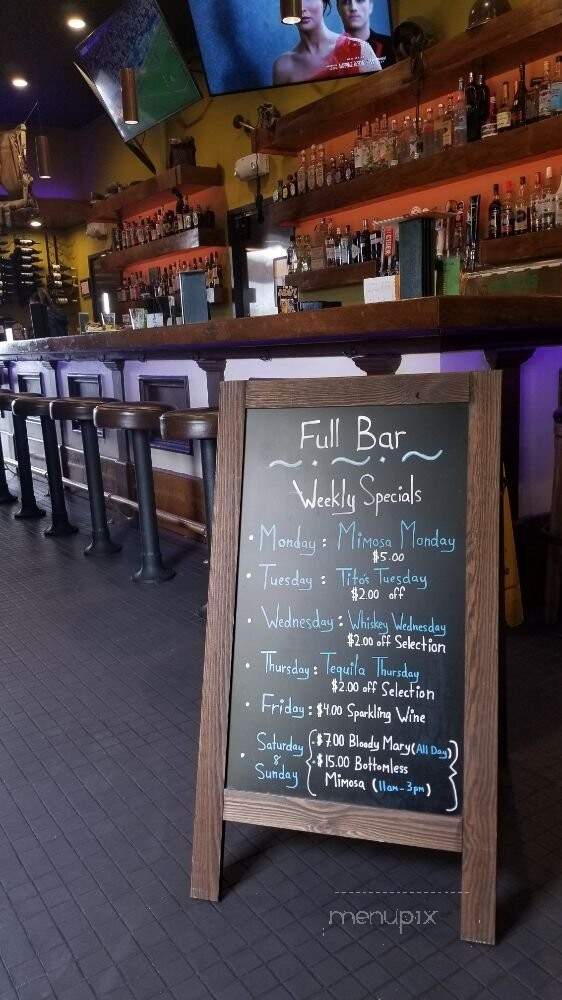 Full Bar
Weekly Specials
• Monday: Mimosa Monday
$5.00
• Tuesday: Tito's Tuesday
$2.00 off
• Wednesday: Whiskey Wednesday
$2.00 off Selection
• Thursday: Tequila Thursday
$2.00 off Selection
• Friday: $4.00 Sparkling Wine
• Saturday & Sunday
• $7.00 Bloody Mary (All Day)
• $15.00 Bottomless
Mimosa (11am-3pm)
menupix